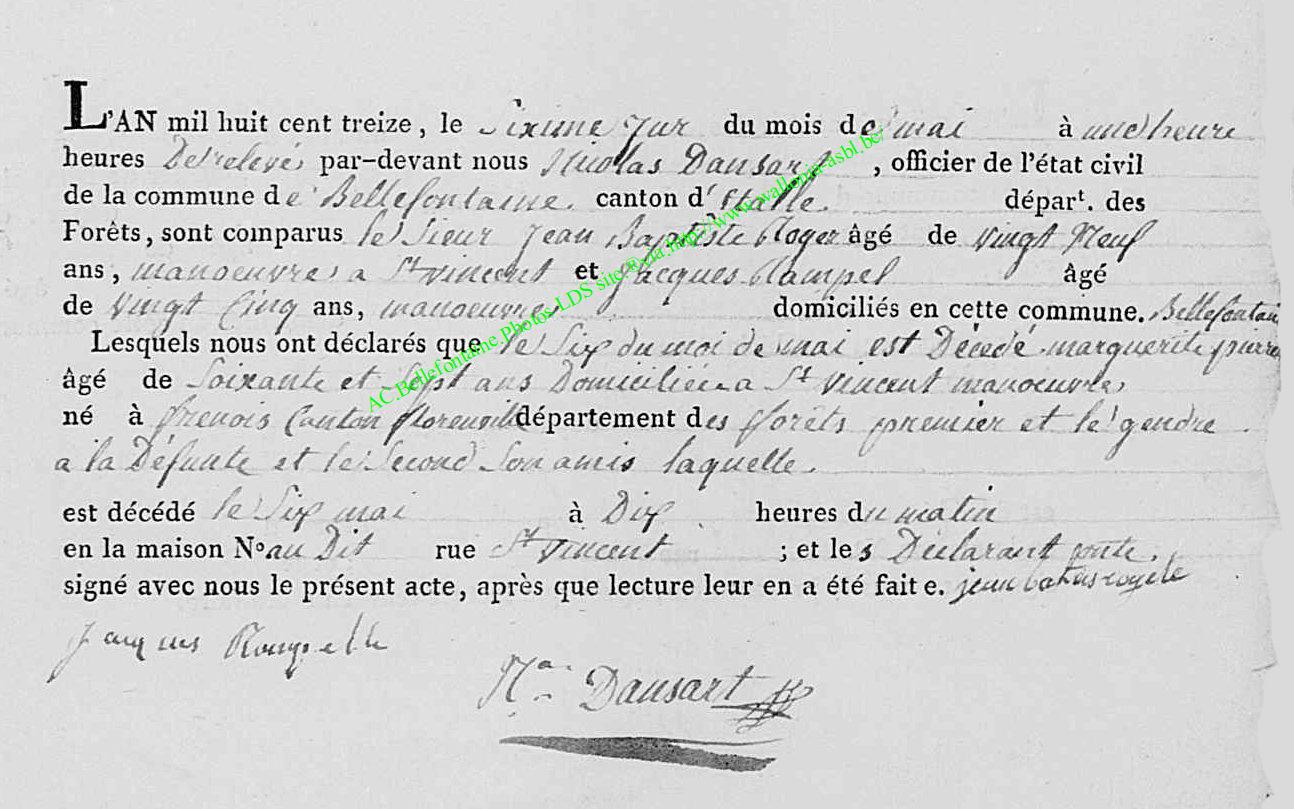 L'AN mil huit cent treize, le sixieme jour du mois de mai à une heure
heures De relevé par-devant nous Nicolas Dansart, officier de l'état civil
de la commune de Bellefontaine. canton d'Etalle. départ. des
Forêts, sont comparus le Sieur Jean Baptiste Roger âgé de vingt Neuf
ans, manoeuvre a St vincent et Jacques Rampel âgé
de vingt Cinq ans, manoeuvre domiciliés en cette commune. Bellefontain
Lesquels nous ont déclarés que le Six du moi de mai est Décédé marguerite pierre
âgé de Soixante et Sept ans Domiciliée a St vincent manoeuvre
né à frenois Canton florenville département des forêts premier et le gendre
a la Défunte et le Second Son amis laquelle.
est décédé le Six mai à Dix heures du matin
en la maison No au Dit rue St vincent ; et les Déclarant
signé avec nous le présent acte, après que lecture leur en a été faite. jean
Jacques Rompelle
Nas Dansart
AC.Bellefontaine.Photos LDS site © via http://www.wallonia-asbl.be/